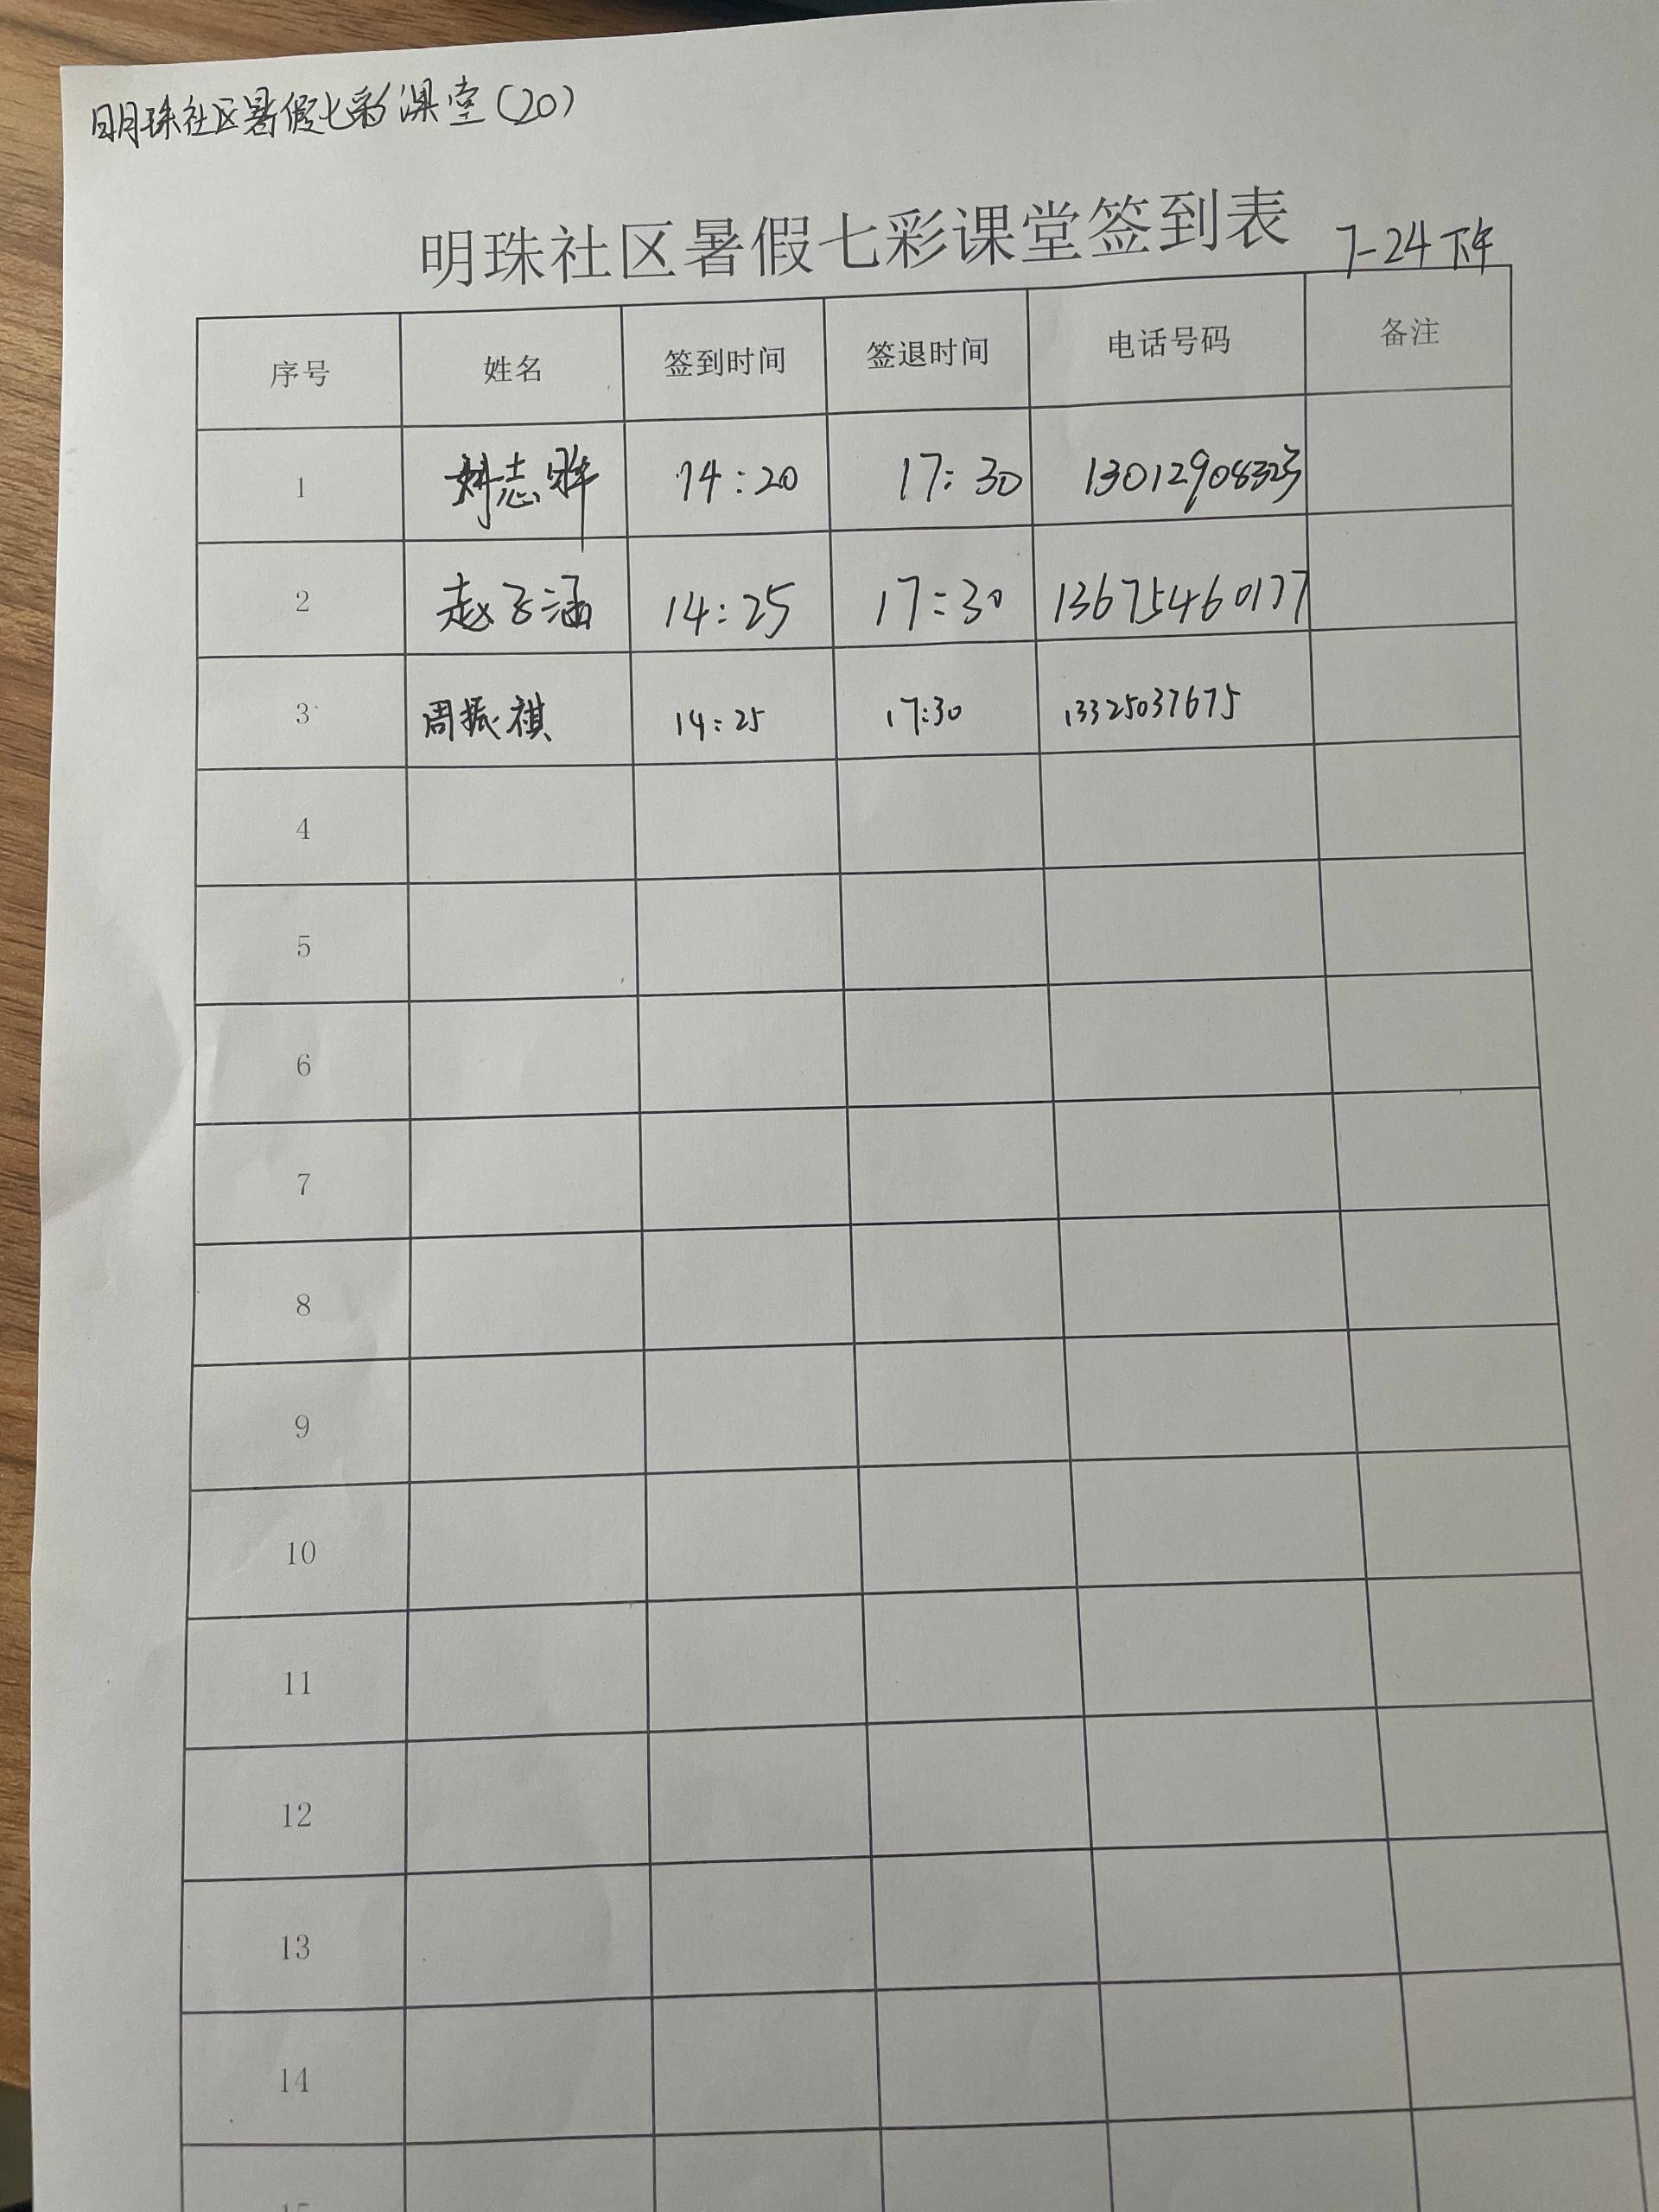 明珠社区暑假七彩课堂(20)
明珠社区暑假七彩课堂签到表 7-24下午
序号 姓名 签到时间 签退时间 电话号码 备注
1 志 14:20 17:30
2 赵子涵 14:25 17:30 13675460177
3 周振祺 14:25 17:30 13325037675
4
5
6
7
8
9
10
11
12
13
14
15